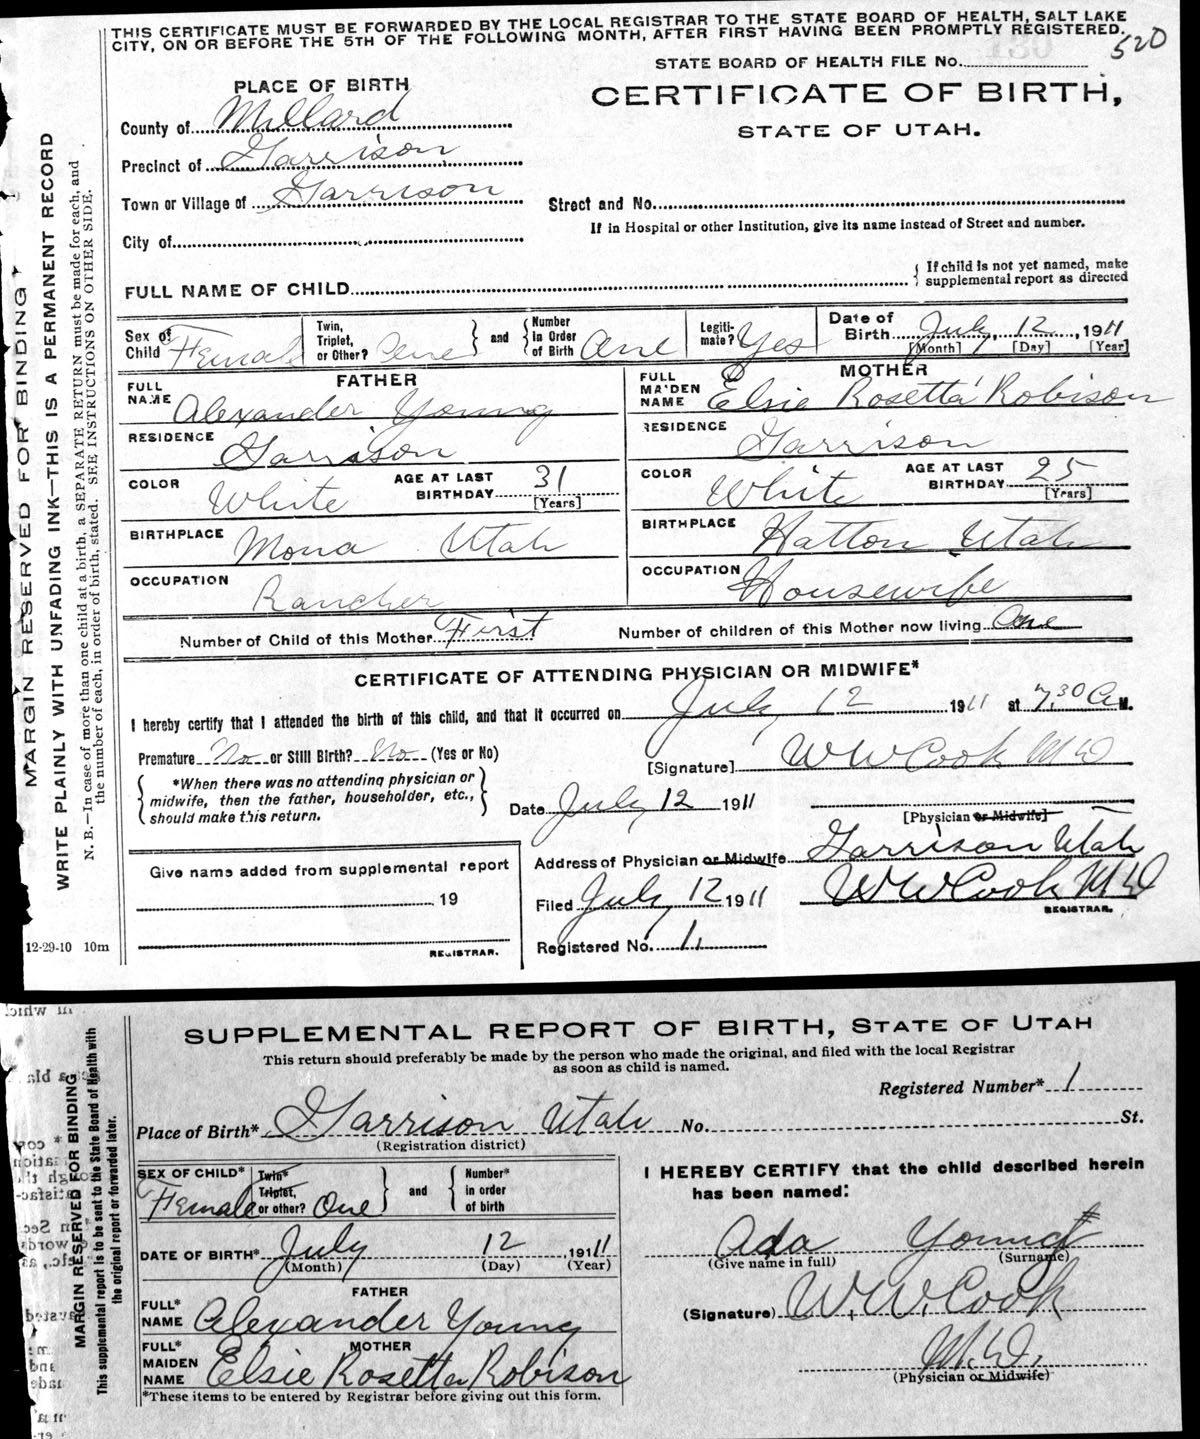 THIS CERTIFICATE MUST BE FORWARDED BY THE LOCAL REGISTRAR TO THE STATE BOARD OF HEALTH, SALT LAKE
CITY, ON OR BEFORE THE 5TH OF THE FOLLOWING MONTH, AFTER FIRST HAVING BEEN PROMPTLY REGISTERED.
520
STATE BOARD OF HEALTH FILE No.
PLACE OF BIRTH
CERTIFICATE OF BIRTH,
STATE OF UTAH.
County of Millard
Precinct of Garrison
Town or Village of Garrison
Street and No.
If in Hospital or other Institution, give its name instead of Street and number.
City of
FULL NAME OF CHILD
{ If child is not yet named, make supplemental report as directed
Sex of Child Female
Twin, Triplet, or Other? One } and { Number in Order of Birth One
Legiti-mate? Yes
Date of Birth July 12, 1911
[Month] [Day] [Year]
FATHER
FULL NAME Alexander Young
RESIDENCE Garrison
COLOR White AGE AT LAST BIRTHDAY 31 [Years]
BIRTHPLACE Mona Utah
OCCUPATION Rancher
MOTHER
FULL MAIDEN NAME Elsie Rosetta Robison
RESIDENCE Garrison
COLOR White AGE AT LAST BIRTHDAY 25 [Years]
BIRTHPLACE Hatton Utah
OCCUPATION Housewife
Number of Child of this Mother First Number of children of this Mother now living One
CERTIFICATE OF ATTENDING PHYSICIAN OR MIDWIFE*
I hereby certify that I attended the birth of this child, and that it occurred on July 12 1911 at 7,30 A M.
Premature No or Still Birth? No (Yes or No)
[Signature] W W Cook M D
{ *When there was no attending physician or midwife, then the father, householder, etc., should make this return. }
Date July 12 1911
[Physician or Midwife]
Address of Physician or Midwife Garrison Utah
Give name added from supplemental report
19
REGISTRAR.
Filed July 12 1911 W W Cook M D
REGISTRAR.
Registered No. 1.
MARGIN RESERVED FOR BINDING
WRITE PLAINLY WITH UNFADING INK—THIS IS A PERMANENT RECORD
N. B.—In case of more than one child at a birth, a SEPARATE RETURN must be made for each, and
the number of each, in order of birth, stated. SEE INSTRUCTIONS ON OTHER SIDE.
12-29-10 10m
SUPPLEMENTAL REPORT OF BIRTH, STATE OF UTAH
This return should preferably be made by the person who made the original, and filed with the local Registrar
as soon as child is named.
Registered Number* 1
Place of Birth* Garrison Utah No. St.
(Registration district)
SEX OF CHILD* Female
Twin* Triplet, or other? One } and { Number* in order of birth
DATE OF BIRTH* July 12 1911
(Month) (Day) (Year)
FATHER
FULL* NAME Alexander Young
MOTHER
FULL* MAIDEN NAME Elsie Rosetta Robison
*These items to be entered by Registrar before giving out this form.
I HEREBY CERTIFY that the child described herein
has been named:
Ada Young
(Give name in full) (Surname)
(Signature) W. W. Cook
M. D.
(Physician or Midwife)
MARGIN RESERVED FOR BINDING
This supplemental report is to be sent to the State Board of Health with
the original report or forwarded later.